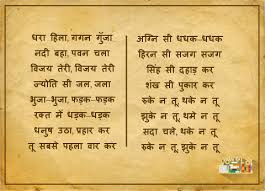 धरा हिला, गगन गुँजा
नदी बहा, पवन चला
विजय तेरी, विजय तेरी
ज्योति सी जल, जला
भुजा-भुजा, फड़क-फड़क
रक्त में धड़क-धड़क
धनुष उठा, प्रहार कर
तू सबसे पहला वार कर
अग्नि सी धधक-धधक
हिरन सी सजग सजग
सिंह सी दहाड़ कर
शंख सी पुकार कर
रुके न तू, थके न तू
झुके न तू, थमे न तू
सदा चले, थके न तू
रुके न तू, झुके न तू